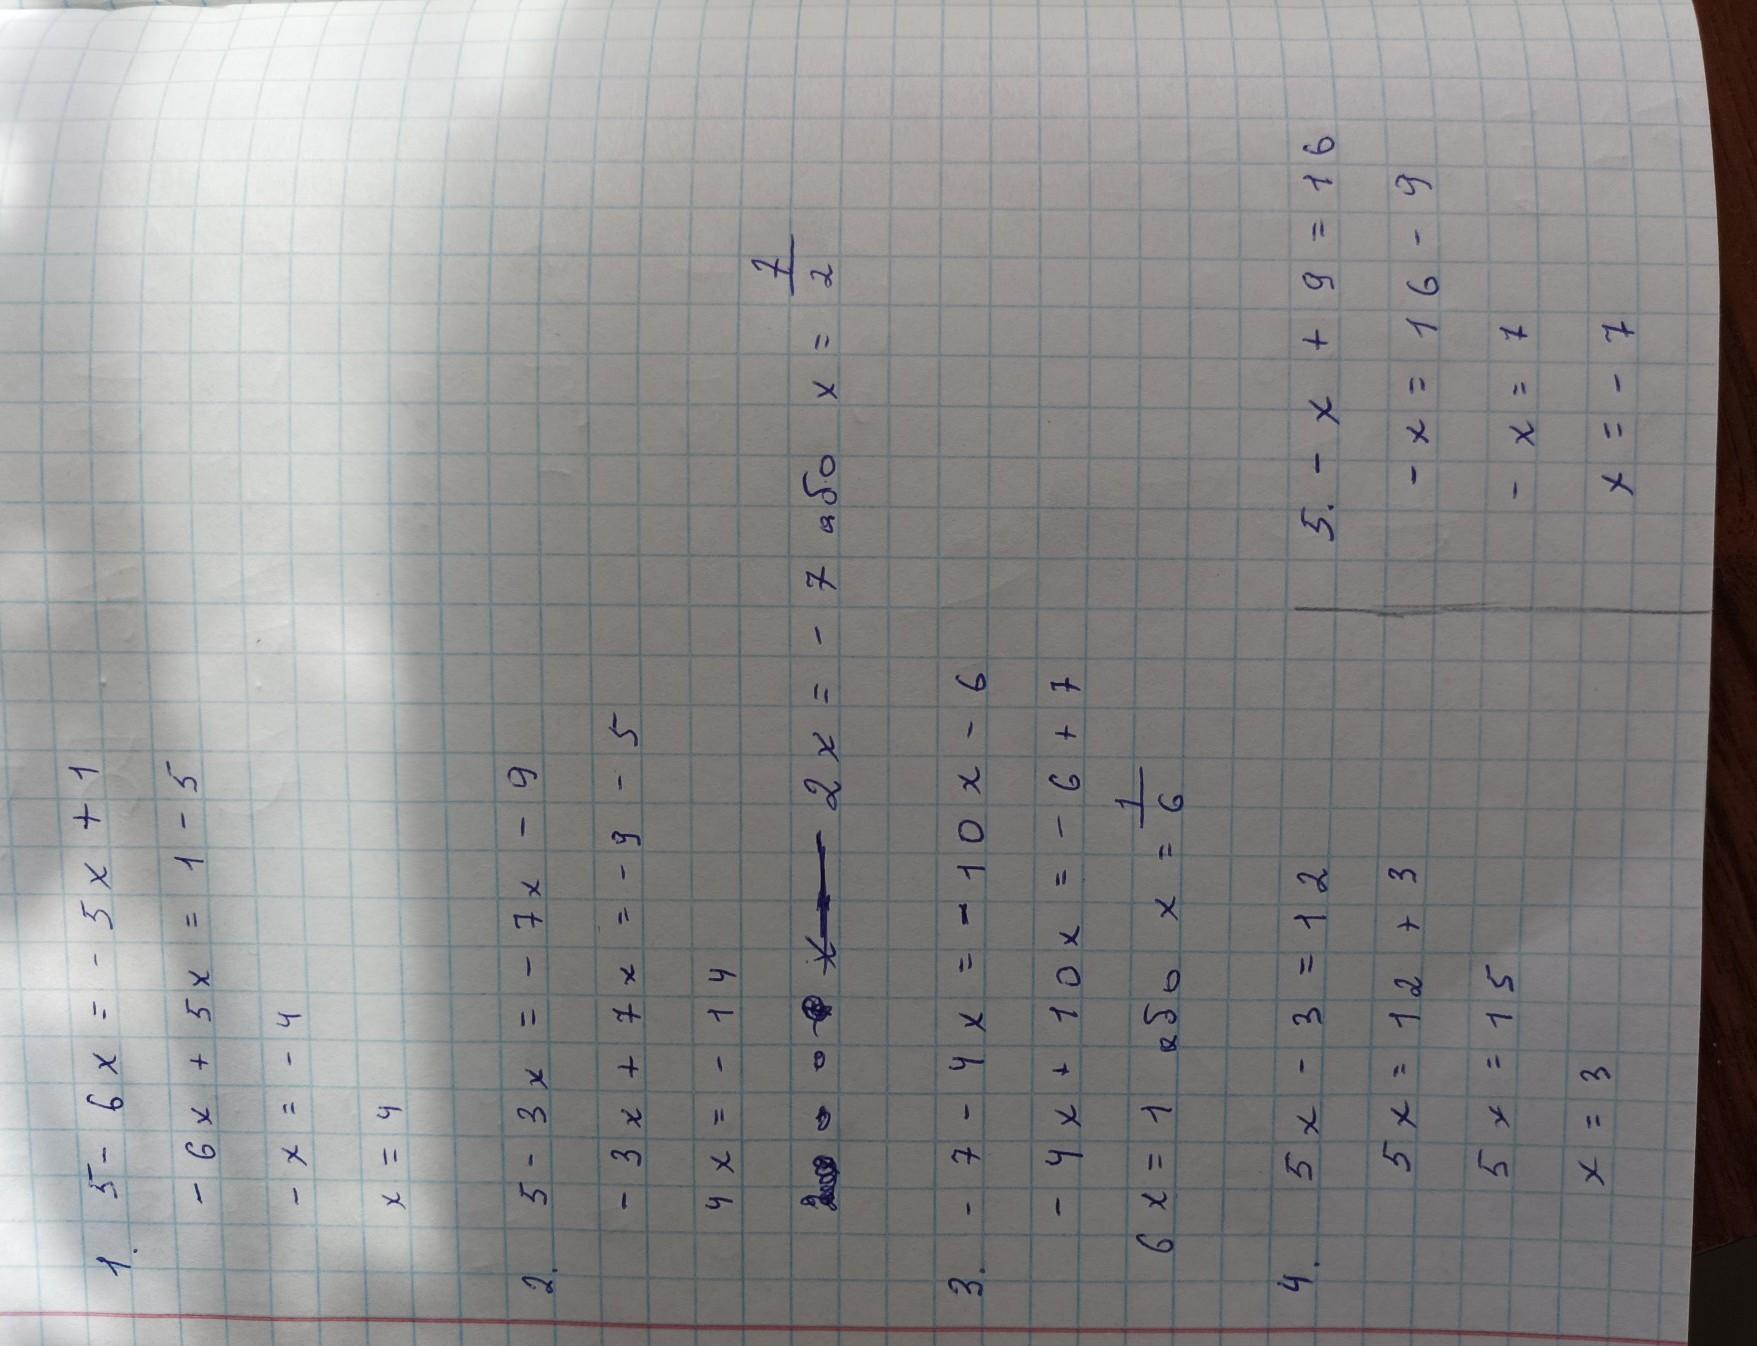 1. 5 - 6x = - 5x + 1
- 6x + 5x = 1 - 5
- x = - 4
x = 4
2. 5 - 3x = - 7x - 9
- 3x + 7x = - 9 - 5
4x = - 14
2x = - 7 або x = 7/2
3. - 7 - 4x = - 10x - 6
- 4x + 10x = - 6 + 7
6x = 1 або x = 1/6
4. 5x - 3 = 12
5x = 12 + 3
5x = 15
x = 3
5. - x + 9 = 16
- x = 16 - 9
- x = 7
x = - 7